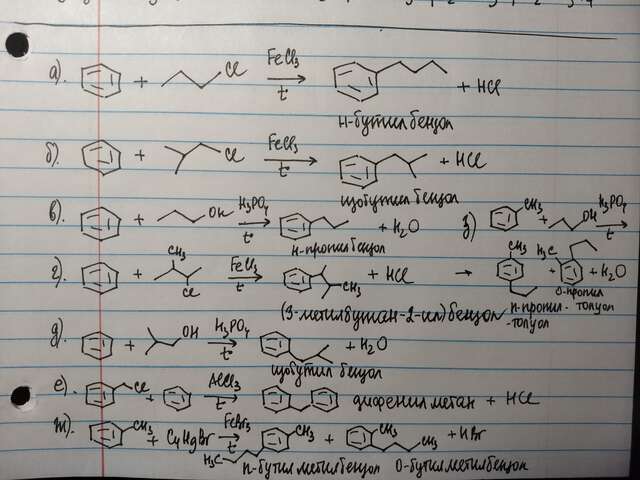 а). + Cl FeCl3 t + HCl
н-бутил бензол
б). + Cl FeCl3 t + HCl
изобутил бензол
в). + OH H3PO4 t + H2O
н-пропил бензол
з) CH3 + OH H3PO4 t
г). + CH3 Cl FeCl3 t CH3 + HCl
(3-метилбутан-2-ил)бензол
→ CH3 + H3C + H2O
п-пропил-толуол
о-пропил толуол
д). + OH H3PO4 t + H2O
изобутил бензол
е). Cl + AlCl3 t дифенилметан + HCl
ж). CH3 + C4H9Br FeBr3 t CH3 H3C + CH3 CH3 + HBr
п-бутилметилбензол о-бутилметилбензол